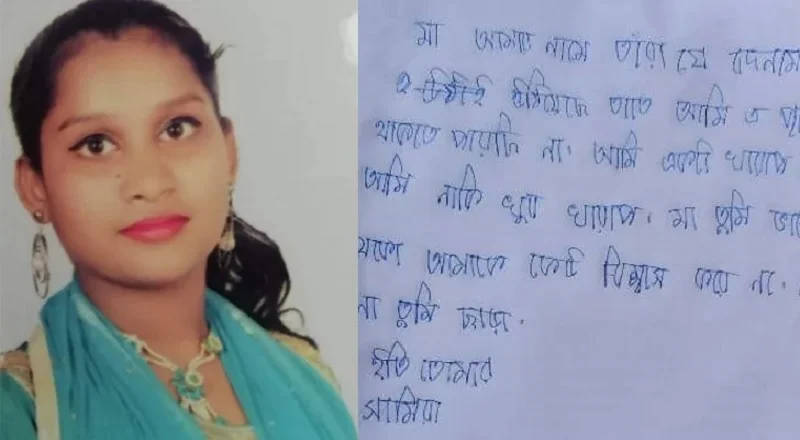 মা আমার নামে তাঁরা যে বদনাম
থাকতে পারছি না। আমি একটা খারাপ
আমি নাকি খুব খারাপ। মা তুমি
থেকো আমাকে কেউ বিশ্বাস করে না।
না তুমি ছাড়া।
ইতি তোমার
সামিরা